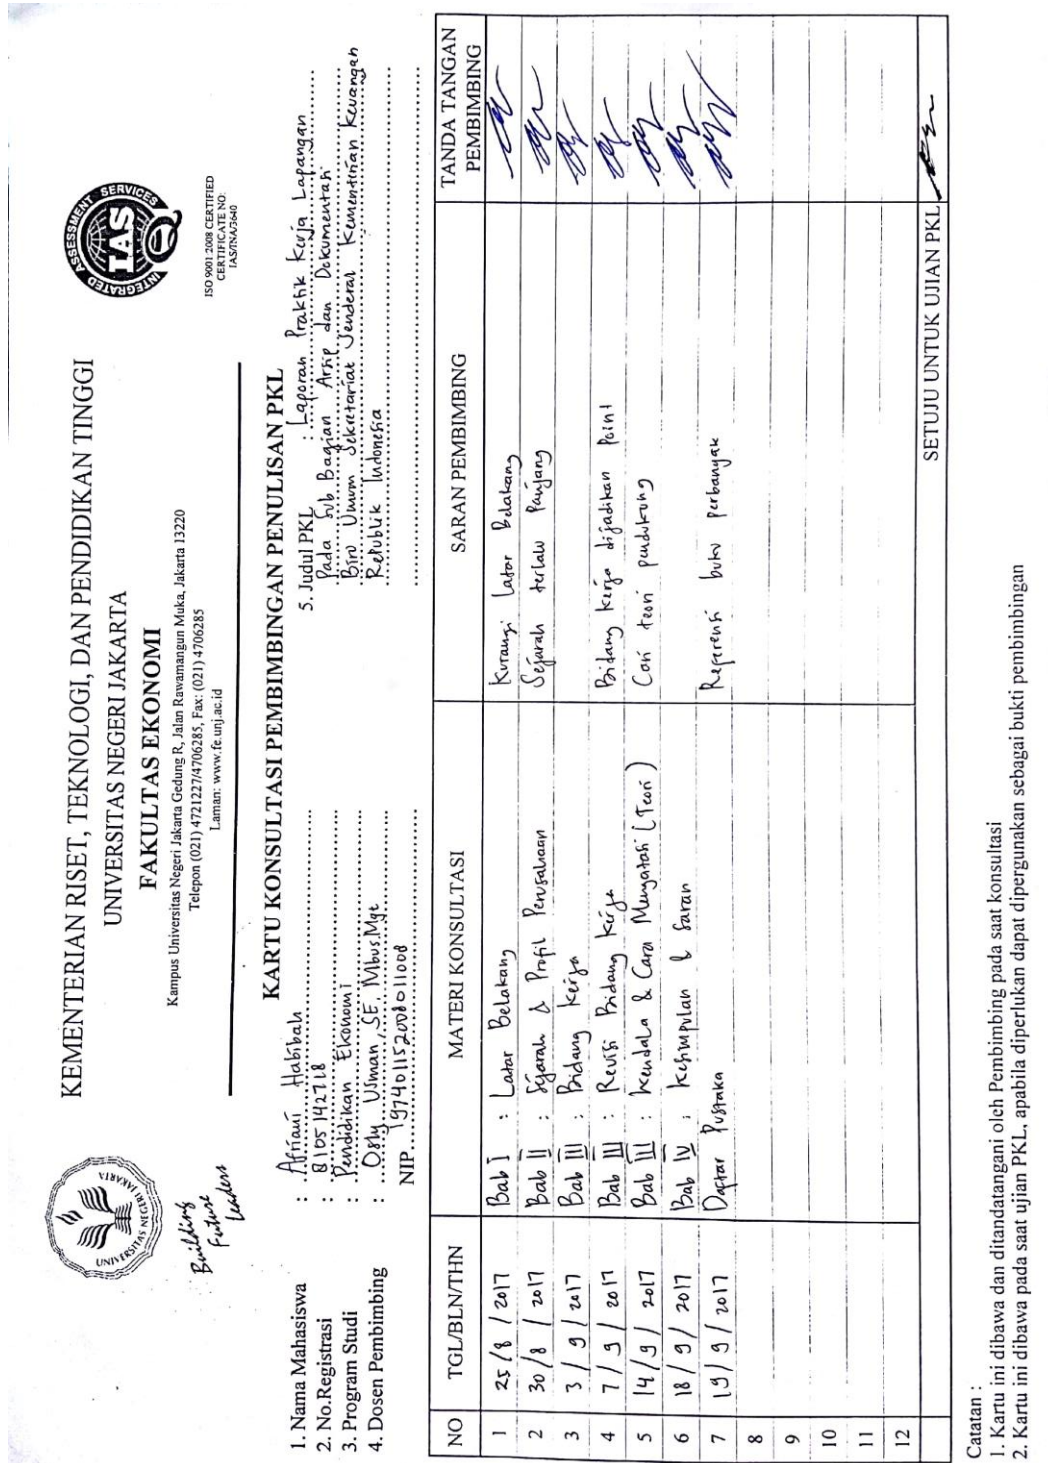 UNIVERSITAS NEGERI JAKARTA
Building
Future
Leaders
KEMENTERIAN RISET, TEKNOLOGI, DAN PENDIDIKAN TINGGI
UNIVERSITAS NEGERI JAKARTA
FAKULTAS EKONOMI
Kampus Universitas Negeri Jakarta Gedung R, Jalan Rawamangun Muka, Jakarta 13220
Telepon (021) 4721227/4706285, Fax: (021) 4706285
Laman: www.fe.unj.ac.id
INTEGRATED ASSESSMENT SERVICES
IAS
ISO 9001:2008 CERTIFIED
CERTIFICATE NO:
IAS/INA/3640
KARTU KONSULTASI PEMBIMBINGAN PENULISAN PKL
1. Nama Mahasiswa : Afriani Habibah
2. No.Registrasi : 8105142718
3. Program Studi : Pendidikan Ekonomi
4. Dosen Pembimbing : Osly Usman, SE, Mbus.Mgt
NIP. 197401152008011008
5. Judul PKL : Laporan Praktik Kerja Lapangan
Pada Sub Bagian Arsip dan Dokumentasi
Biro Umum Sekretariat Jenderal Kementrian Keuangan
Republik Indonesia
NO TGL/BLN/THN MATERI KONSULTASI SARAN PEMBIMBING TANDA TANGAN PEMBIMBING
1 25/8/2017 Bab I : Latar Belakang Kurangi Latar Belakang
2 30/8/2017 Bab II : Sejarah & Profil Perusahaan Sejarah terlalu Panjang
3 3/9/2017 Bab III : Bidang Kerja
4 7/9/2017 Bab III : Revisi Bidang Kerja Bidang Kerja dijadikan Point
5 14/9/2017 Bab III : Kendala & Cara Mengatasi (Teori) Cari teori pendukung
6 18/9/2017 Bab IV : Kesimpulan & Saran
7 19/9/2017 Daftar Pustaka Referensi buku perbanyak
8
9
10
11
12
SETUJU UNTUK UJIAN PKL
Catatan :
1. Kartu ini dibawa dan ditandatangani oleh Pembimbing pada saat konsultasi
2. Kartu ini dibawa pada saat ujian PKL, apabila diperlukan dapat dipergunakan sebagai bukti pembimbingan